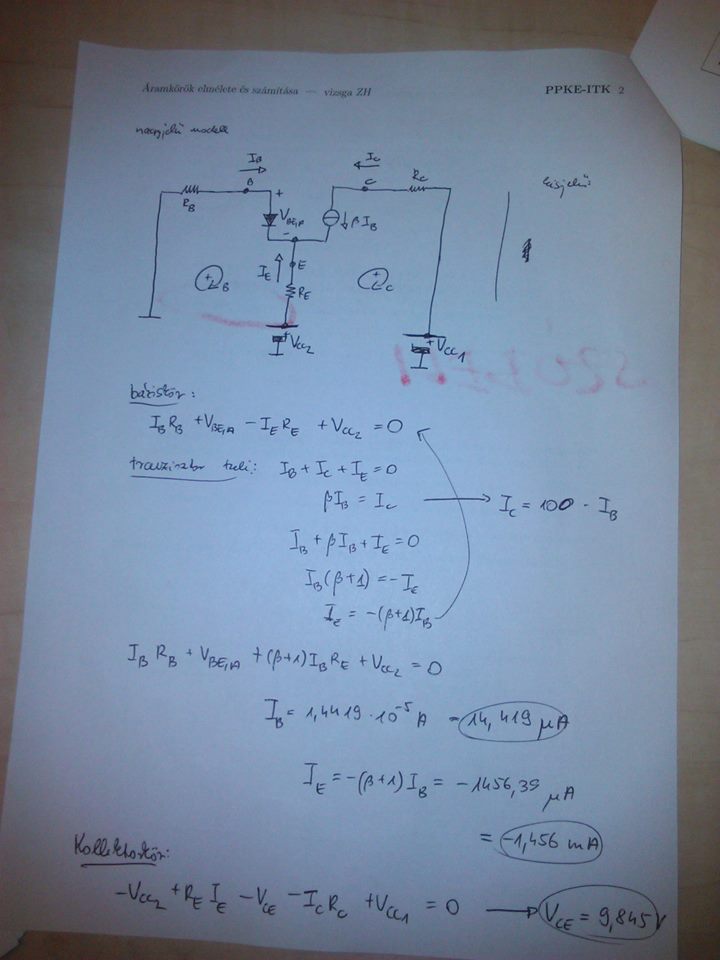 Áramkörök elmélete és számítása — vizsga ZH PPKE-ITK 2
nagyjelű modell
kisjelű:
I_B
I_C
B
+
C
R_C
R_B
V_BE,A
-
βI_B
E
I_E
R_E
B
C
+
V_CC2
+
V_CC1
báziskör:
I_B R_B + V_BE,A - I_E R_E + V_CC2 = 0
tranzisztor
I_B + I_C + I_E = 0
βI_B = I_C → I_C = 100 · I_B
I_B + βI_B + I_E = 0
I_B(β+1) = -I_E
I_E = -(β+1)I_B
I_B R_B + V_BE,A + (β+1)I_B R_E + V_CC2 = 0
I_B = 1,4419 · 10^-5 A = 14,419 μA
I_E = -(β+1) I_B = -1456,39 μA
= -1,456 mA
Kollektorkör:
-V_CC2 + R_E I_E - V_CE - I_C R_C + V_CC1 = 0 → V_CE = 9,845 V